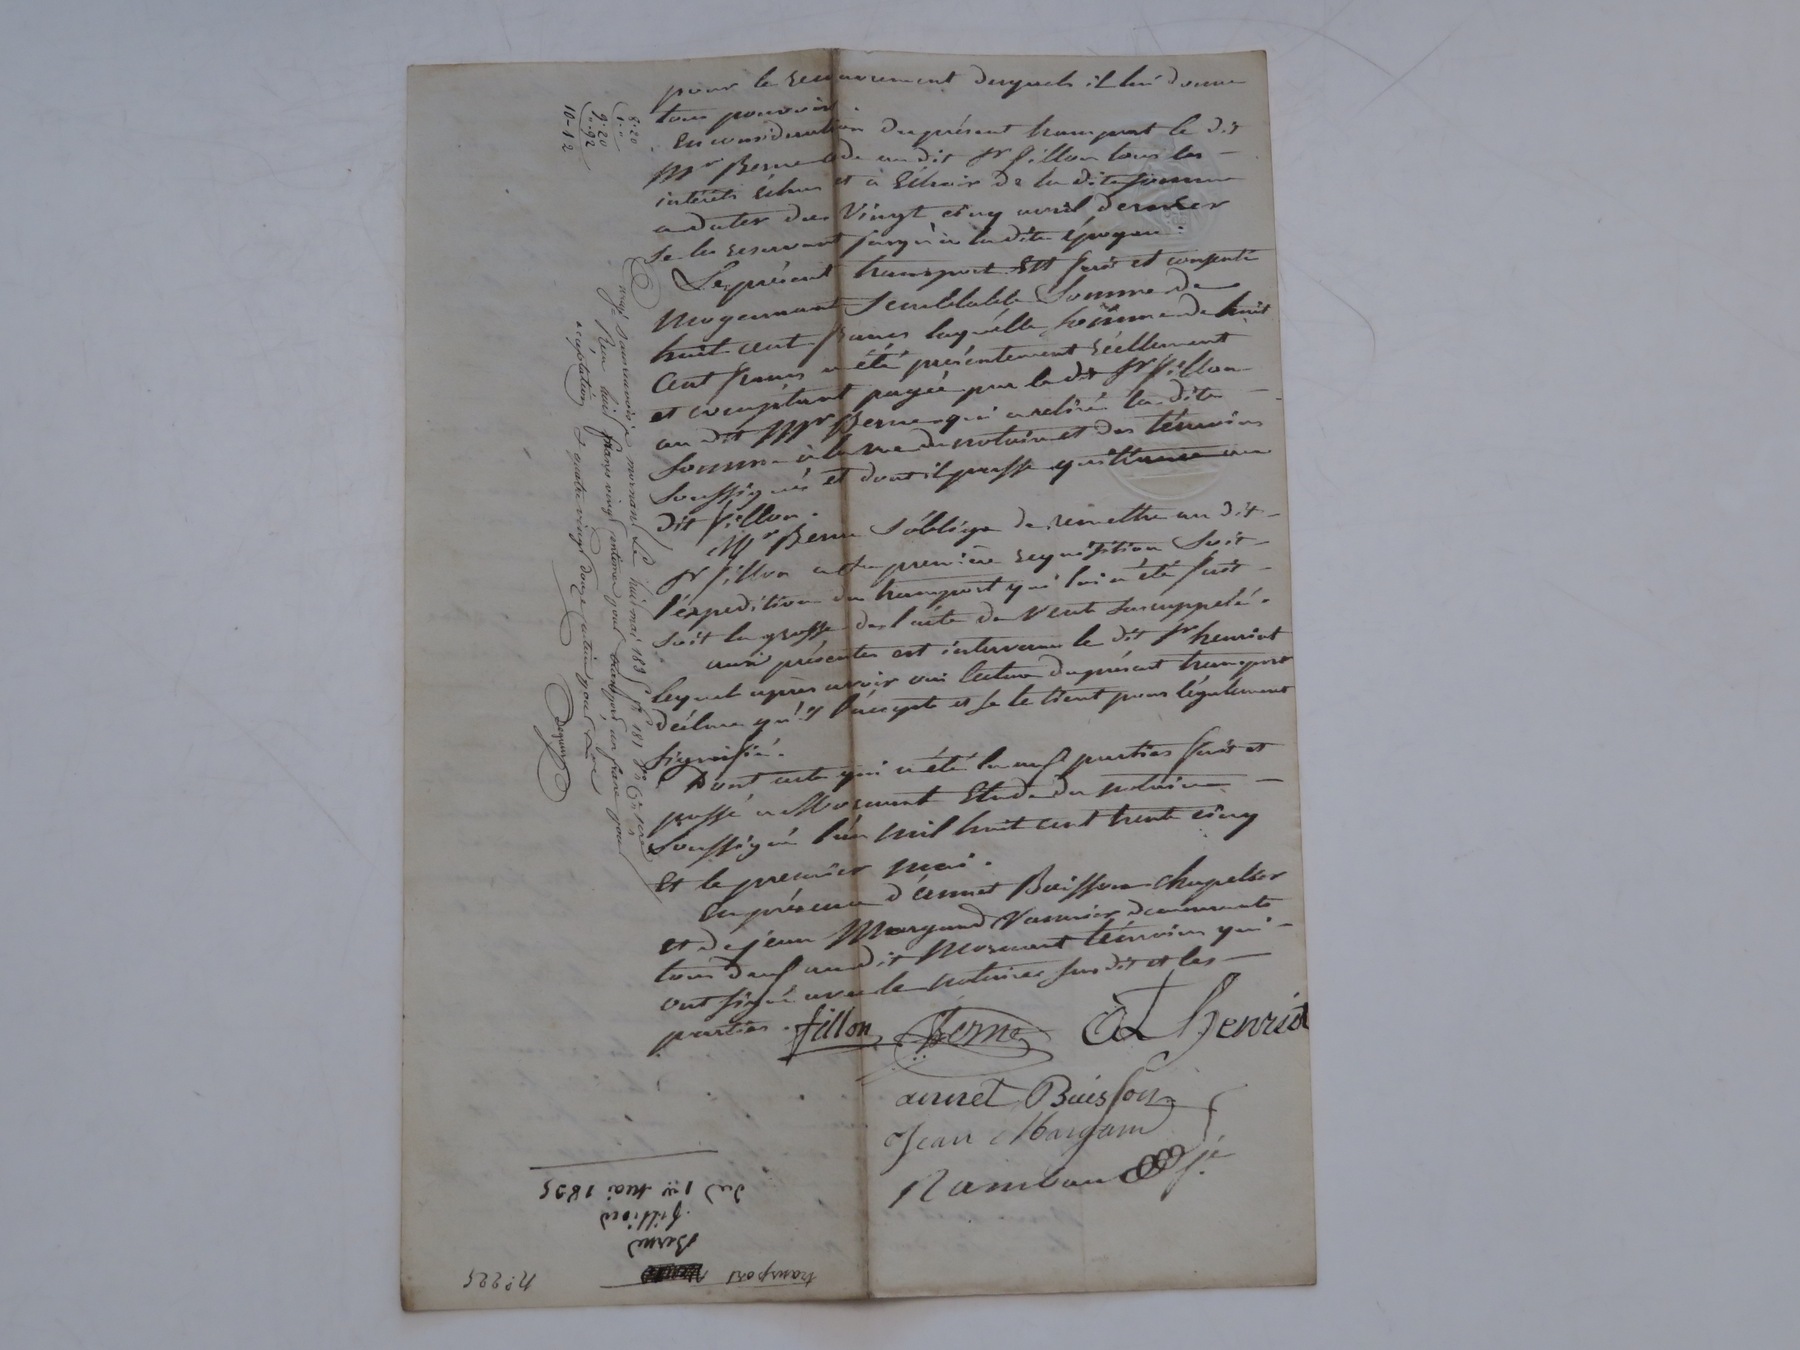 pour le recouvrement desquels il lui donne
tous pouvoirs.
En considération du présent transport le dit
Mr Berne cède au dit Sr fillon tous les
intérêts échus et à échoir de la dite somme
a dater du vingt cinq avril dernier
se les reservant jusqu'à la dite époque.
Le présent transport Est fait et consenti
moyennant Semblable Somme de
huit cent francs laquelle somme de huit
Cent francs a été présentement réellement
et comptant payée par le dit Sr fillon
au dit Mr Berne qui a retiré la dite
Somme à la vue du notaire et des témoins
soussignés et dont il passe quittance au
dit fillon.
Mr Berne s'oblige de remettre au dit
Sr fillon a sa première requisition Soit
l'expédition du transport qui lui a été fait
soit la grosse de l'acte de Vente susrappelé.
aux présentes est intervenu le dit Sr henriot
lequel après avoir oui lecture du présent transport
déclare qu'il l'accepte et se le tient pour légalement
signifié.
Dont acte qui a été lu aux parties fait et
passé a Mornant Etude du notaire
soussigné l'an mil huit cent trente cinq
Et le premier mai.
En présence d'annet Buisson chapelier
et de jean Margand Vannier demeurants
tous deux au dit Mornant témoins qui
ont signé avec le notaire susdit et les
parties.
fillon Berne henriot
annet Buisson
Jean Margam
Rambau
8.20
1.
9.20
.92
10-12
mornant Le huit mai 183
Reçu huit francs vingt centimes pour transport un franc pour
acceptation Et quatre vingt douze centimes pour
N° 225
transport
Berne
fillion
du 1er mai 1835